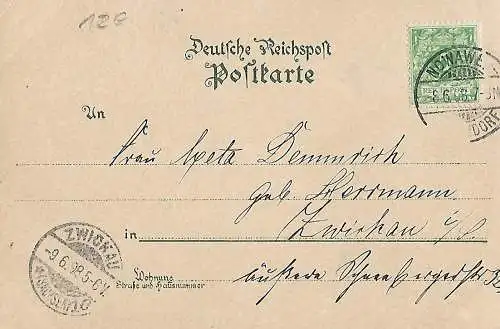 12€
Deutsche Reichspost
Postkarte
An
Frau Meta Demmrich
geb. Herrmann.
in Zwickau i/S.
Wohnung
Straße und Hausnummer
äußere Schneebergerstr
NOWAWE
8.6.98.7-
DORF
ZWICKAU
-9.6.98.5-6V.